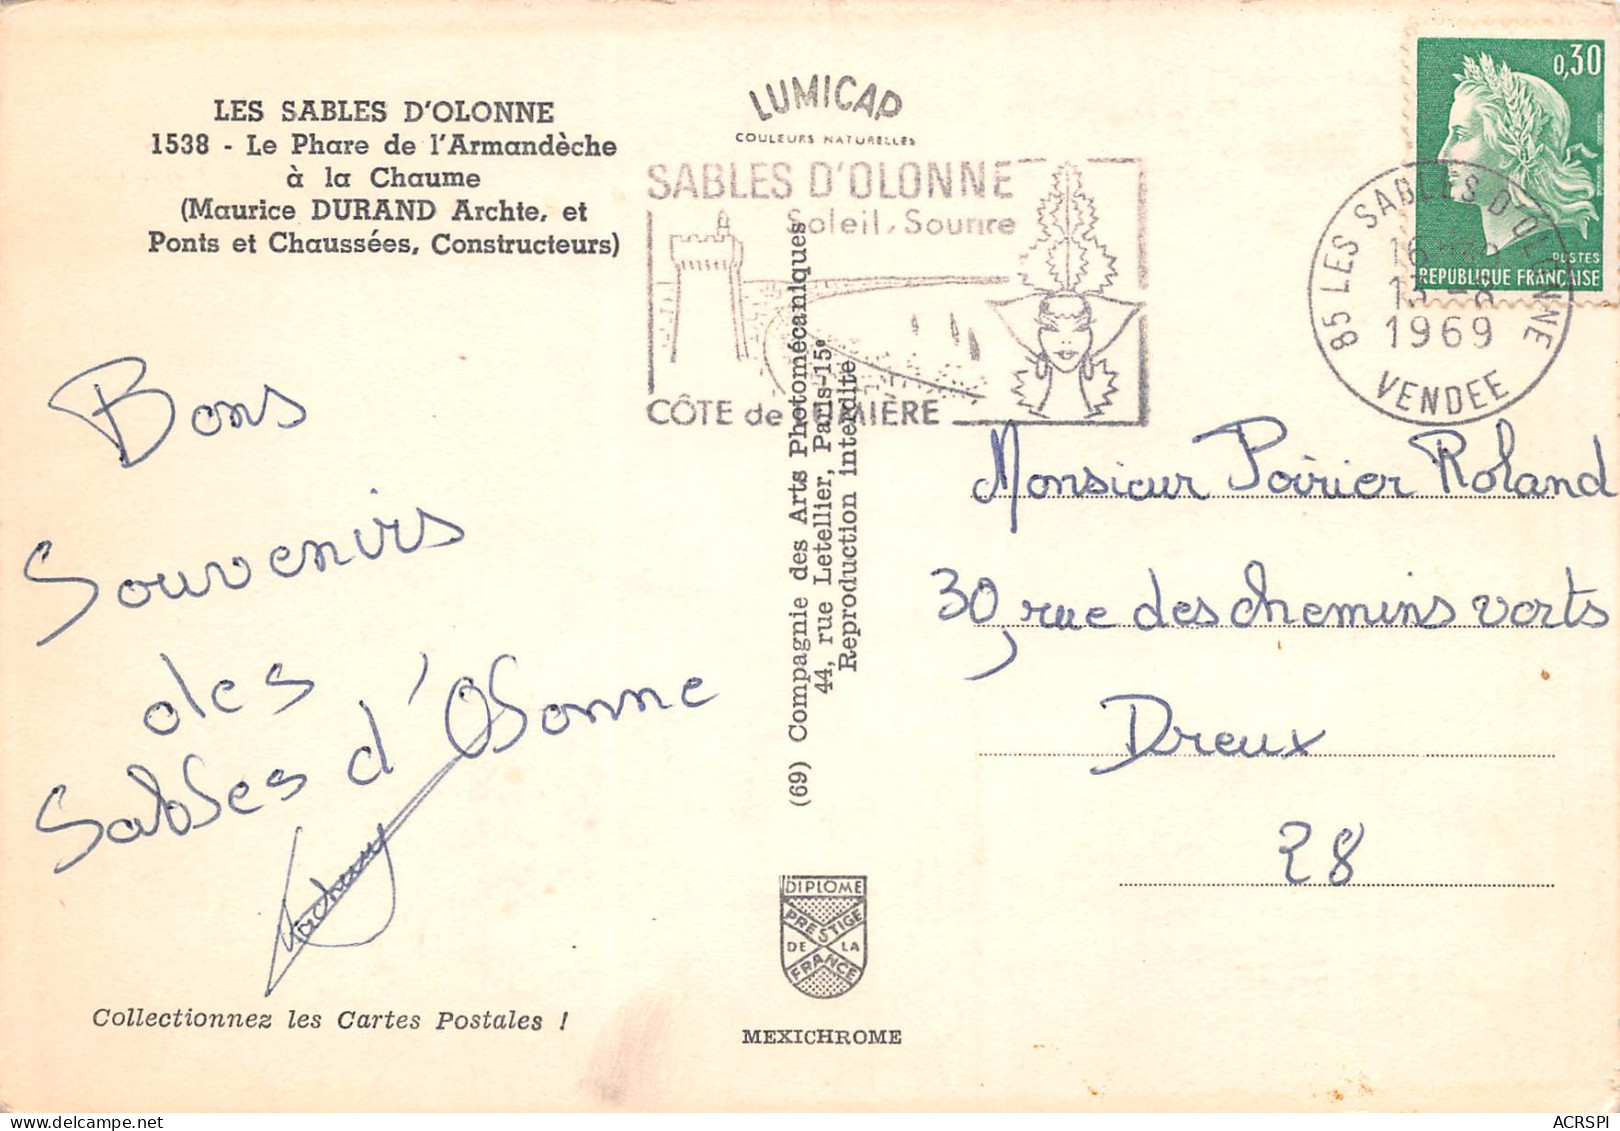 LES SABLES D'OLONNE
1538 - Le Phare de l'Armandèche
à la Chaume
(Maurice DURAND Archte, et
Ponts et Chaussées, Constructeurs)
LUMICAP
COULEURS NATURELLES
SABLES D'OLONNE
Soleil, Sourire
CÔTE de LUMIÈRE
0,30
POSTES
REPUBLIQUE FRANÇAISE
85 LES SABLES D'OLONNE
16
13 -8
1969
VENDEE
Bons
Souvenirs
des
Sables d'Olonne
Collectionnez les Cartes Postales !
(69) Compagnie des Arts Photomécaniques
44, rue Letellier, Paris-15e
Reproduction interdite
DIPLOME
PRESTIGE
DE LA
FRANCE
MEXICHROME
Monsieur Poirier Roland
30, rue des chemins verts
Dreux
28
ACRSPI